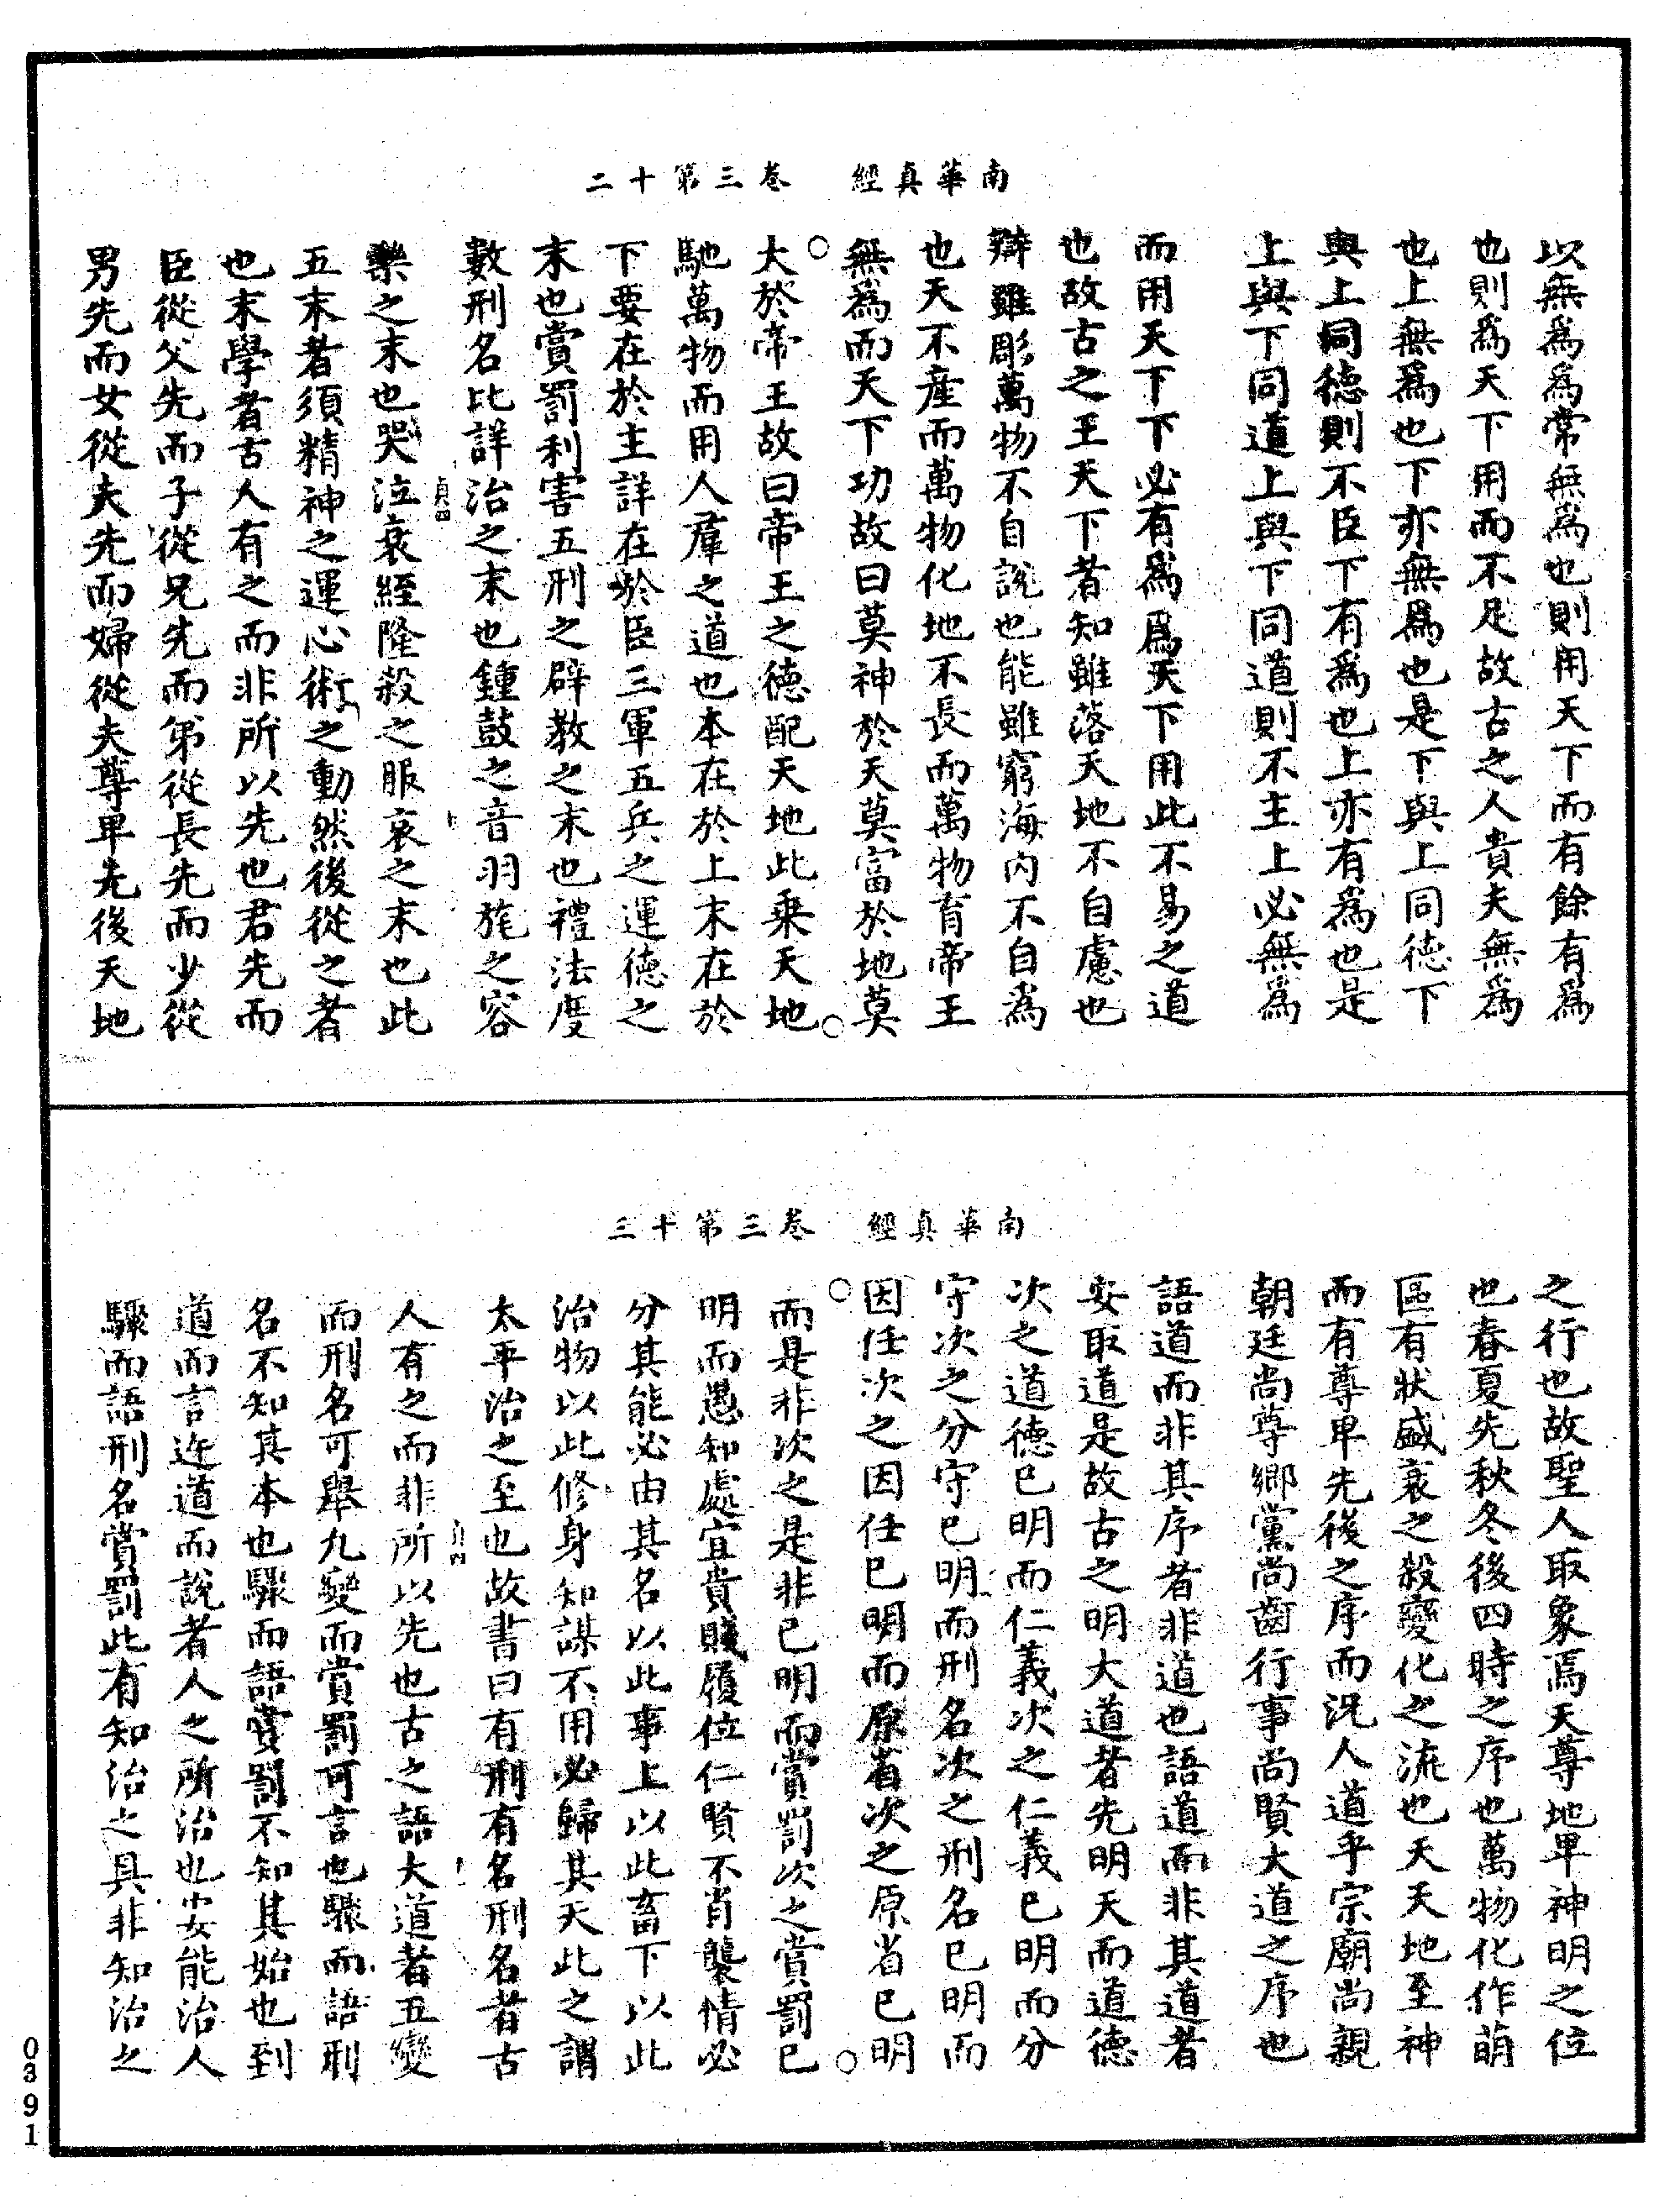 南華真經　卷三第十二
以無為為常無為也則用天下而有餘有為
也則為天下用而不足故古之人貴夫無為
也上無為也下亦無為也是下與上同德下
與上同德則不臣下有為也上亦有為也是
上與下同道上與下同道則不主上必無為
而用天下下必有為為天下用此不易之道
也故古之王天下者知雖落天地不自慮也
辯雖彫萬物不自說也能雖窮海內不自為
也天不產而萬物化地不長而萬物育帝王
無為而天下功故曰莫神於天莫富於地莫
大於帝王故曰帝王之德配天地此乘天地
馳萬物而用人羣之道也本在於上末在於
下要在於主詳在於臣三軍五兵之運德之
末也賞罰利害五刑之辟教之末也禮法度
數刑名比詳治之末也鐘鼓之音羽旄之容
樂之末也哭泣衰絰隆殺之服哀之末也此
五末者須精神之運心術之動然後從之者
也末學者古人有之而非所以先也君先而
臣從父先而子從兄先而弟從長先而少從
男先而女從夫先而婦從夫尊卑先後天地
貞四
南華真經　卷三第十三
之行也故聖人取象焉天尊地卑神明之位
也春夏先秋冬後四時之序也萬物化作萌
區有狀盛衰之殺變化之流也夫天地至神
而有尊卑先後之序而況人道乎宗廟尚親
朝廷尚尊鄉黨尚齒行事尚賢大道之序也
語道而非其序者非道也語道而非其道者
安取道是故古之明大道者先明天而道德
次之道德已明而仁義次之仁義已明而分
守次之分守已明而刑名次之刑名已明而
因任次之因任已明而原省次之原省已明
而是非次之是非已明而賞罰次之賞罰已
明而愚知處宜貴賤履位仁賢不肖襲情必
分其能必由其名以此事上以此畜下以此
治物以此修身知謀不用必歸其天此之謂
太平治之至也故書曰有刑有名刑名者古
人有之而非所以先也古之語大道者五變
而刑名可舉九變而賞罰可言也驟而語刑
名不知其本也驟而語賞罰不知其始也到
道而言迕道而說者人之所治也安能治人
驟而語刑名賞罰此有知治之具非知治之
0391